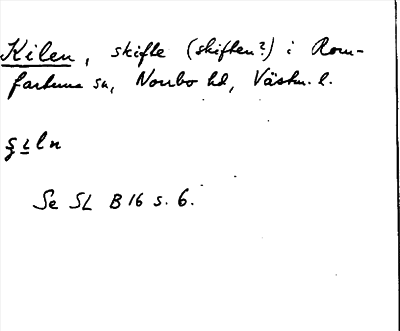 Kilen, skifte (skiften?) i Rom-
fartuna sn, Norrbo hd, Västm. l.
Se SL B 16 s. 6.